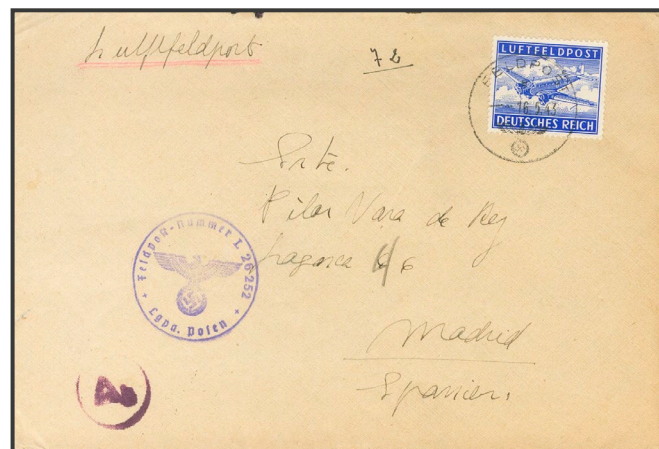 Luftfeldpost
72
LUFTFELDPOST
DEUTSCHES REICH
FELDPOST
16.5.43
Srte.
Pilar Vara de Rey
Lagasca 6
Madrid
Spanien.
Feldpost-Nummer L 26252
Lgpa. Posen